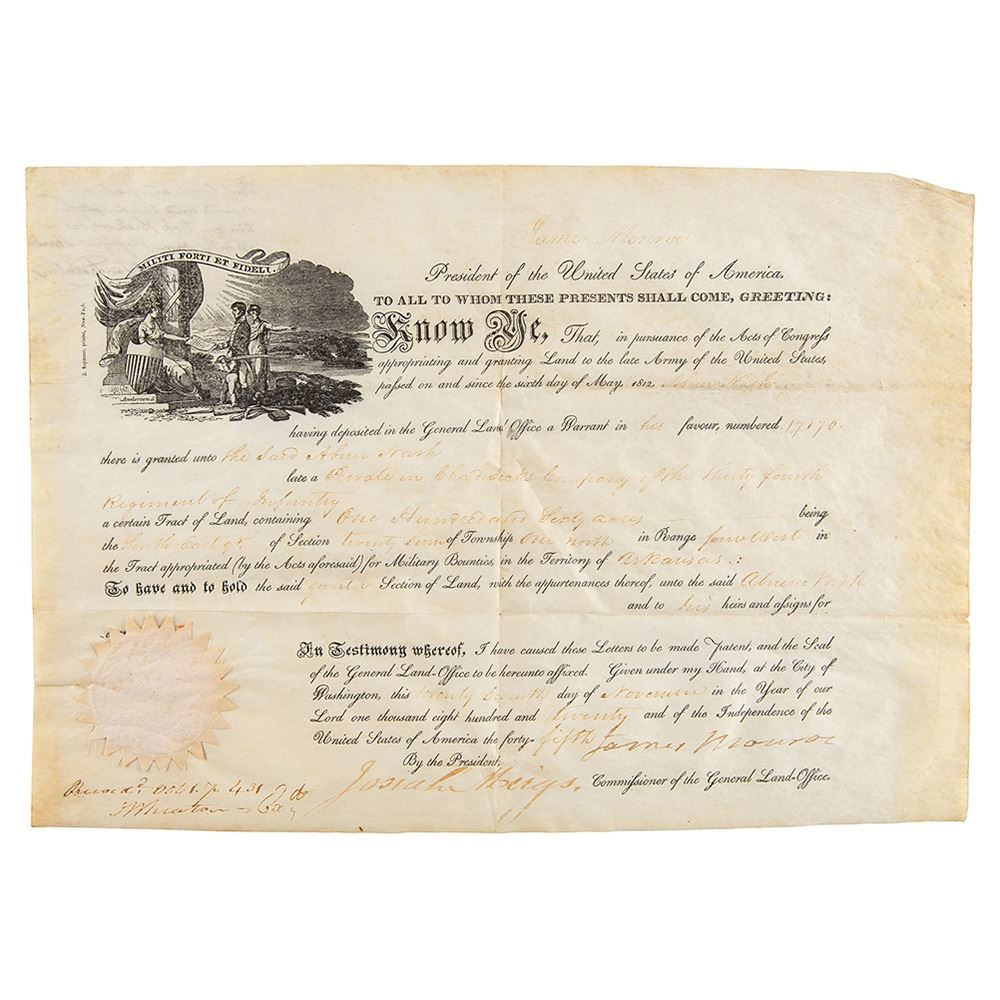 James Monroe
President of the United States of America.
MILITI FORTI ET FIDELI.
TO ALL TO WHOM THESE PRESENTS SHALL COME, GREETING:
Know Ye, That, in pursuance of the Acts of Congress
appropriating and granting Land to the late Army of the United States,
passed on and since the sixth day of May, 1812,
Anderson
having deposited in the General Land Office a Warrant in his favour, numbered 17170.
there is granted unto the said Abner Nash
late a Private in Company of the thirty fourth
Regiment of Infantry
a certain Tract of Land, containing One Hundred and Sixty acres being
the South East qr. of Section twenty of Township one north in Range four West in
the Tract appropriated (by the Acts aforesaid) for Military Bounties, in the Territory of Arkansas.:
To have and to hold the said quarter Section of Land, with the appurtenances thereof, unto the said Abner Nash
and to his heirs and assigns for
In Testimony whereof, I have caused these Letters to be made Patent, and the Seal
of the General Land-Office to be hereunto affixed. Given under my Hand, at the City of
Washington, this twenty day of November in the Year of our
Lord one thousand eight hundred and twenty and of the Independence of the
United States of America the forty-fifth James Monroe
By the President,
Josiah Meigs, Commissioner of the General Land-Office.